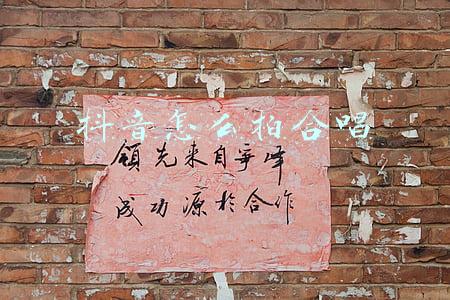 抖音怎么拍合唱
领先来自争峰
成功源於合作